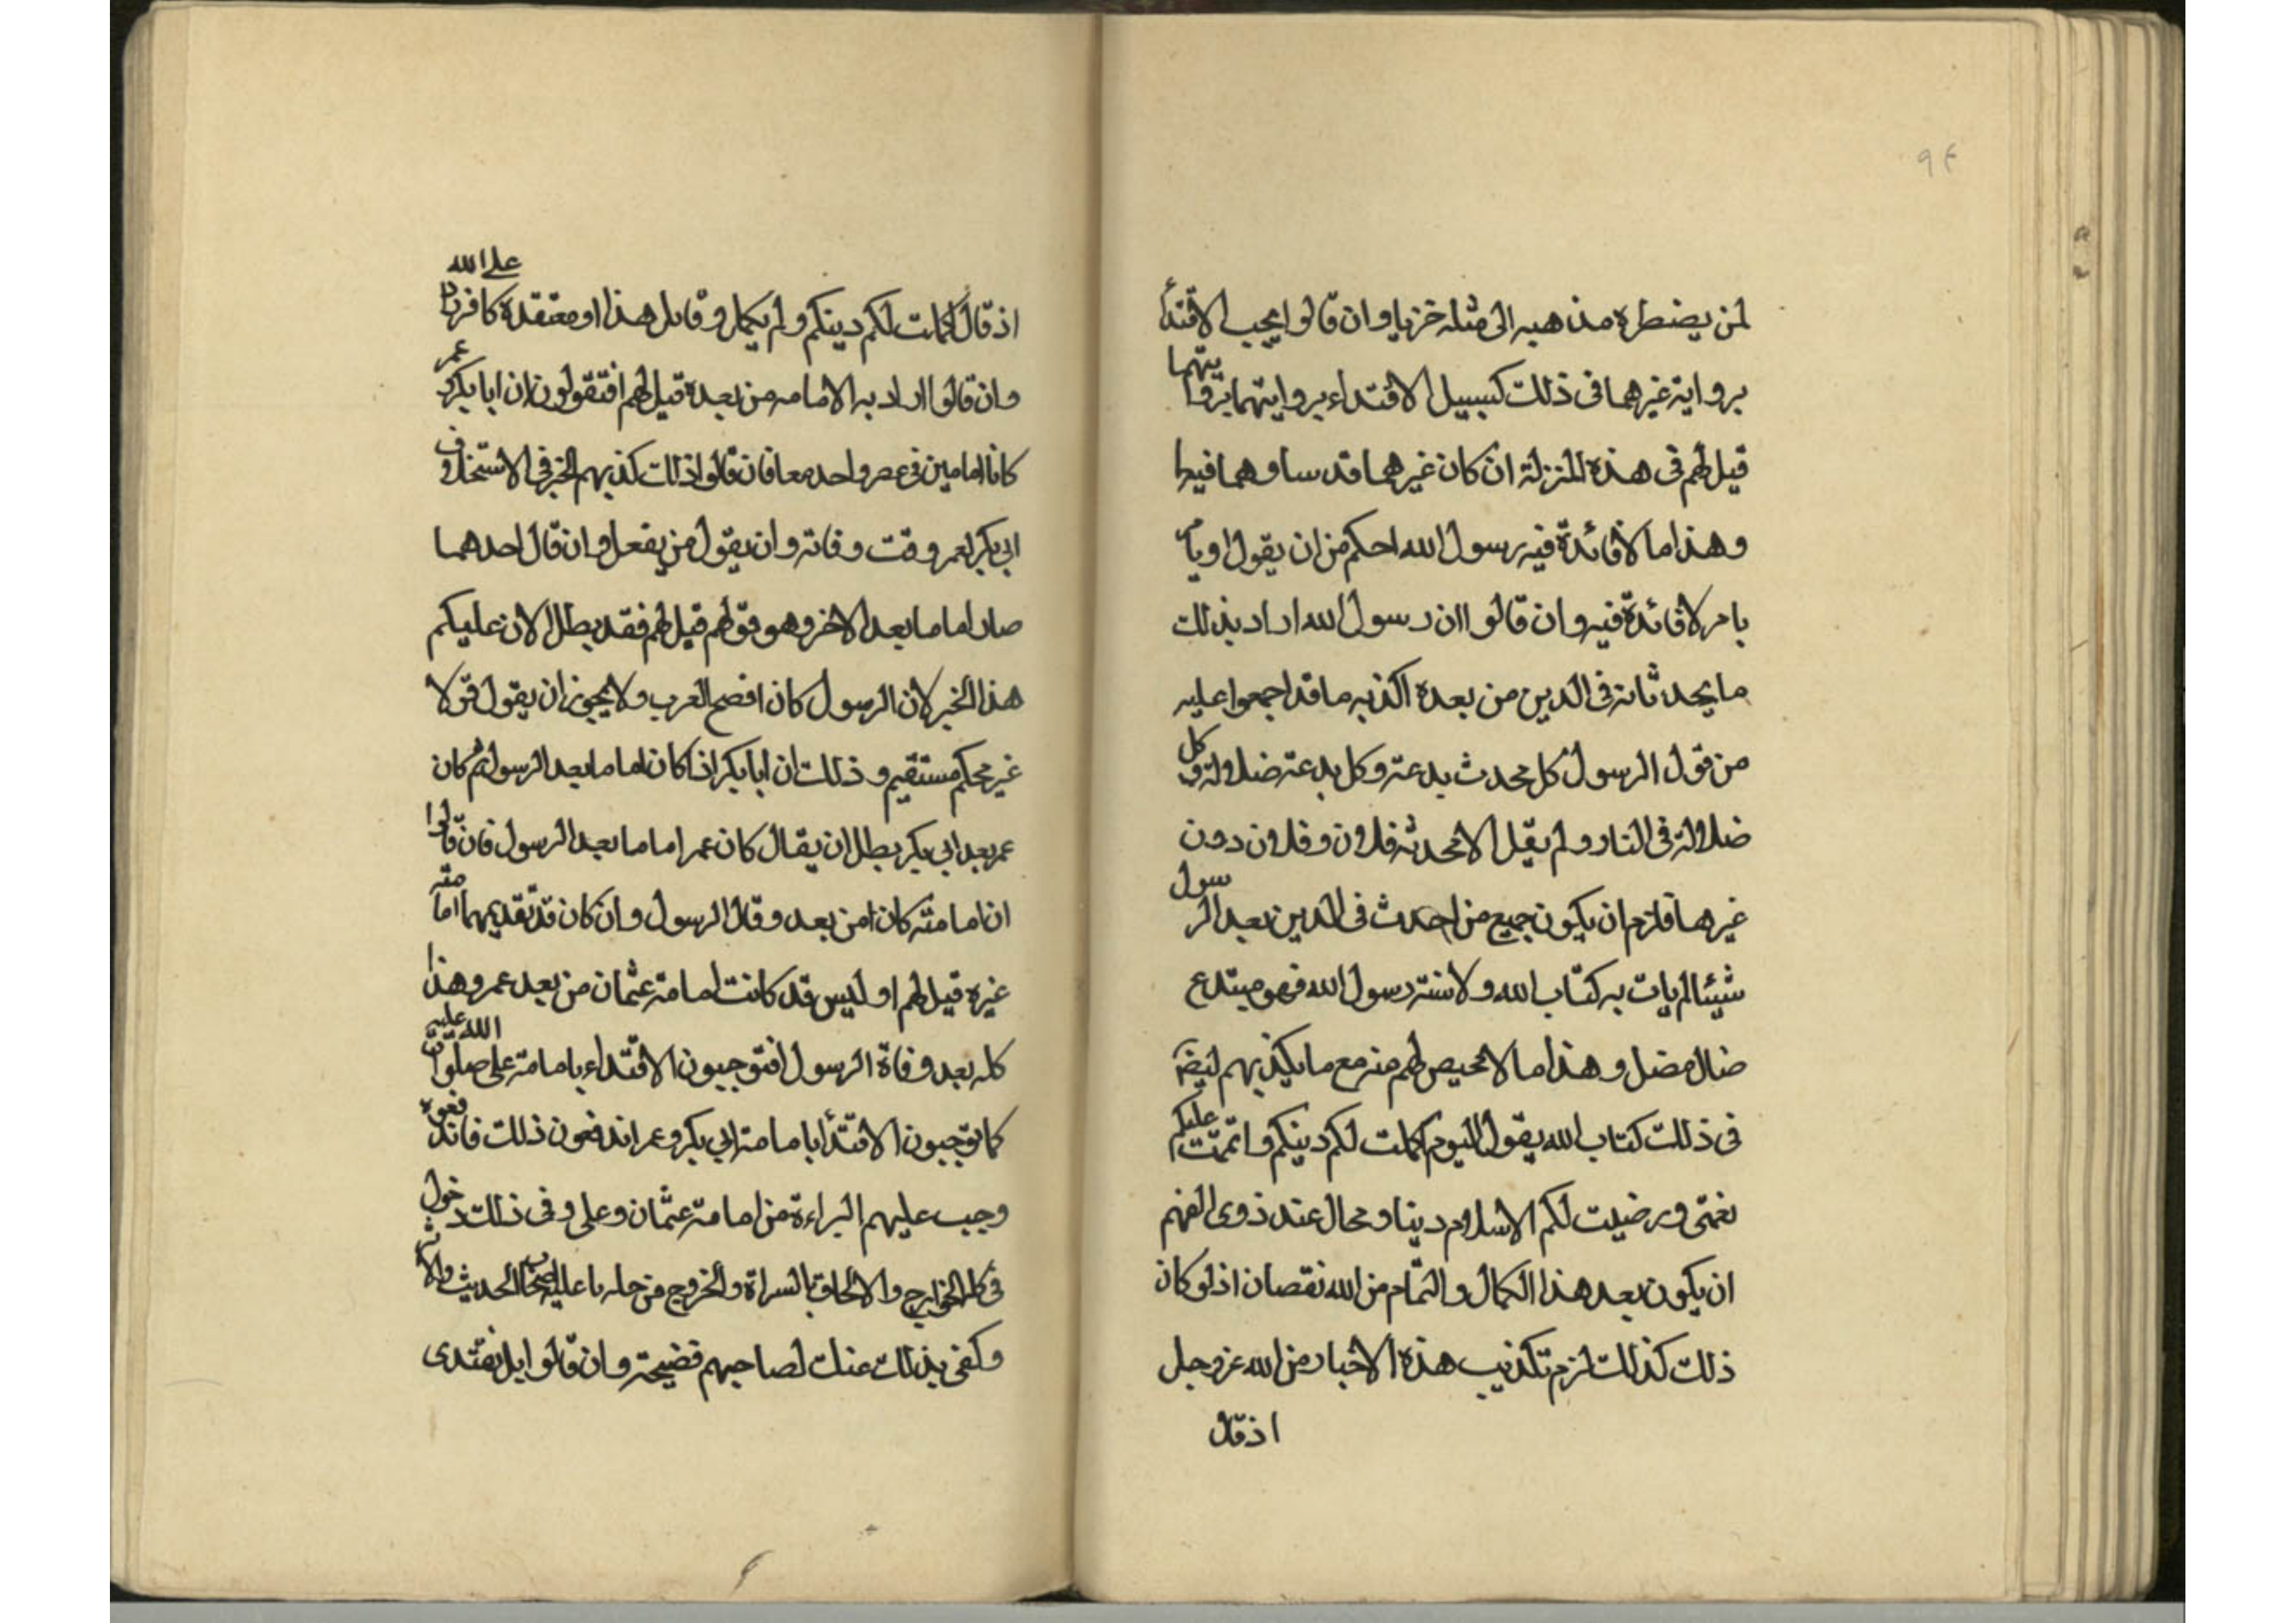 ٩٤
لمن يضطره مذهبه الى مثله خزيا وان قالوا يجب الاقتدأ
برواية غيرهما فى ذلك كسبيل الاقتداء بروايتهما بروايتهما
قيل لهم فى هذه المنزلة ان كان غيرهما قد ساوهما فيها
وهذا ما لا فائدة فيه رسول الله احكم من ان يقول او يأمر
بامر لا فائدة فيه وان قالوا ان رسول الله اراد بذلك
ما يحدثانه فى الدين من بعده اكذبه ما قد اجمعوا عليه
من قول الرسول كل محدث بدعة وكل بدعة ضلالة وكل
ضلالة فى النار ولم يقل الا محدثه فلان وفلان دون
غيرهما فلزم ان يكون جميع من احدث فى الدين بعد الرسول
شيئا لم يات به كتاب الله ولا سنة رسول الله فهو مبتدع
ضال مضل وهذا ما لا محيص لهم منه مع ما يكذبهم ايضا
فى ذلك كتاب الله يقول اليوم اكملت لكم دينكم واتممت عليكم
نعمتى ورضيت لكم الاسلام دينا ومحال عند ذوى الفهم
ان يكون بعد هذا الكمال والتمام من الله نقصان اذ لو كان
ذلك كذلك لزم تكذيب هذه الاخبار من الله عز وجل
اذ قال
اذ قال اكملت لكم دينكم ولم يكمل وقايل هذا او معتقده كافر بالله على
وان قالوا اراد به الامامه من بعده قيل لهم افتقولون ان ابا بكر وعمر
كانا امامين فى عصر واحد معا فان قالوا ذلك كذبهم الخبر فى الاستخلاف
ابى بكر لعمر وقت وفاته وان يقول من يفعل وان قال احدهما
صار اماما بعد الاخر وهو قولهم قيل لهم فقد بطل الان عليكم
هذا الخبر لان الرسول كان افصح العرب ولا يجوز ان يقول قولا
غير محكم مستقيم وذلك ان ابا بكر اذا كان اماما بعد الرسول ثم كان
عمر بعد ابى بكر بطل ان يقال كان عمر اماما بعد الرسول فان قالوا
ان امامته كان من بعد وقال الرسول وان كان قد تقديمهما امامة
غيره قيل لهم او ليس قد كانت امامة عثمان من بعد عمر وهذا
كله بعد وفاة الرسول افتوجبون الاقتداء بامامة على صلوات الله عليه
كما توجبون الاقتدأ بامامة ابى بكر وعمر اندفعون ذلك فاندفعوه
وجب عليهم البراءة من امامة عثمان وعلى وفى ذلك دخول
فى الخوارج والالحاق بالسراة والخروج من جملة ما عليه اصحاب الحديث والاثر
وكفى بذلك عنك لصاحبهم فضيحة وان قالوا بل نقتدى